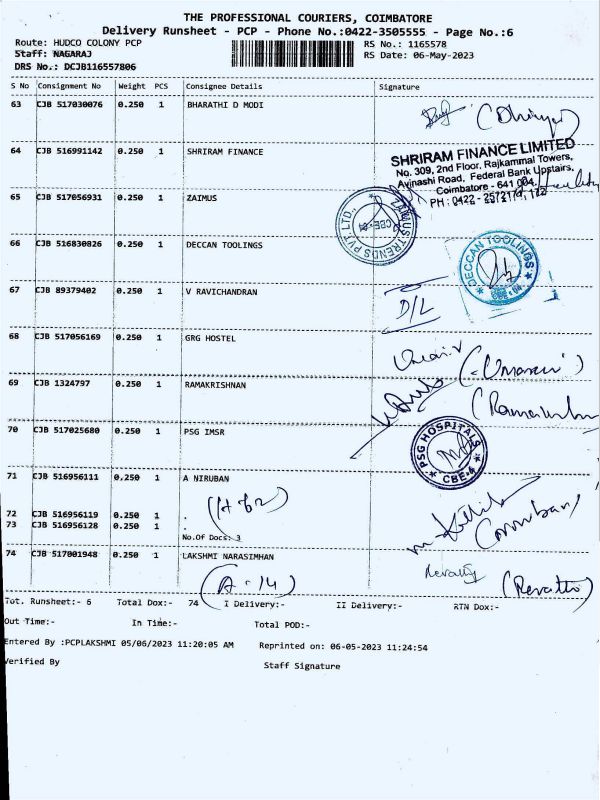 THE PROFESSIONAL COURIERS, COIMBATORE
Delivery Runsheet - PCP - Phone No.:0422-3505555 - Page No.:6
Route: HUDCO COLONY PCP RS No.: 1165578
Staff: NAGARAJ RS Date: 06-May-2023
DRS No.: DCJB116557806
S No Consignment No Weight PCS Consignee Details Signature
63 CJB 517030076 0.250 1 BHARATHI D MODI
64 CJB 516991142 0.250 1 SHRIRAM FINANCE
SHRIRAM FINANCE LIMITED
No. 309, 2nd Floor, Rajkammal Towers,
Avinashi Road, Federal Bank Upstairs,
Coimbatore - 641 004.
PH : 0422 -
65 CJB 517056931 0.250 1 ZAIMUS
ZAIMUS TRENDS PVT. LTD., CBE-04
66 CJB 516830826 0.250 1 DECCAN TOOLINGS
DECCAN TOOLINGS CBE-04
67 CJB 89379402 0.250 1 V RAVICHANDRAN
D/L
68 CJB 517056169 0.250 1 GRG HOSTEL
69 CJB 1324797 0.250 1 RAMAKRISHNAN
70 CJB 517025680 0.250 1 PSG IMSR
PSG HOSPITALS CBE-4
71 CJB 516956111 0.250 1 A NIRUBAN
(H 62)
72 CJB 516956119 0.250 1 .
73 CJB 516956128 0.250 1 .
No.Of Docs: 3
74 CJB 517001948 0.250 1 LAKSHMI NARASIMHAN
(A-14) Revathy (Revathy)
Tot. Runsheet:- 6 Total Dox:- 74 I Delivery:- II Delivery:- RTN Dox:-
Out Time:- In Time:- Total POD:-
Entered By :PCPLAKSHMI 05/06/2023 11:20:05 AM Reprinted on: 06-05-2023 11:24:54
Verified By Staff Signature